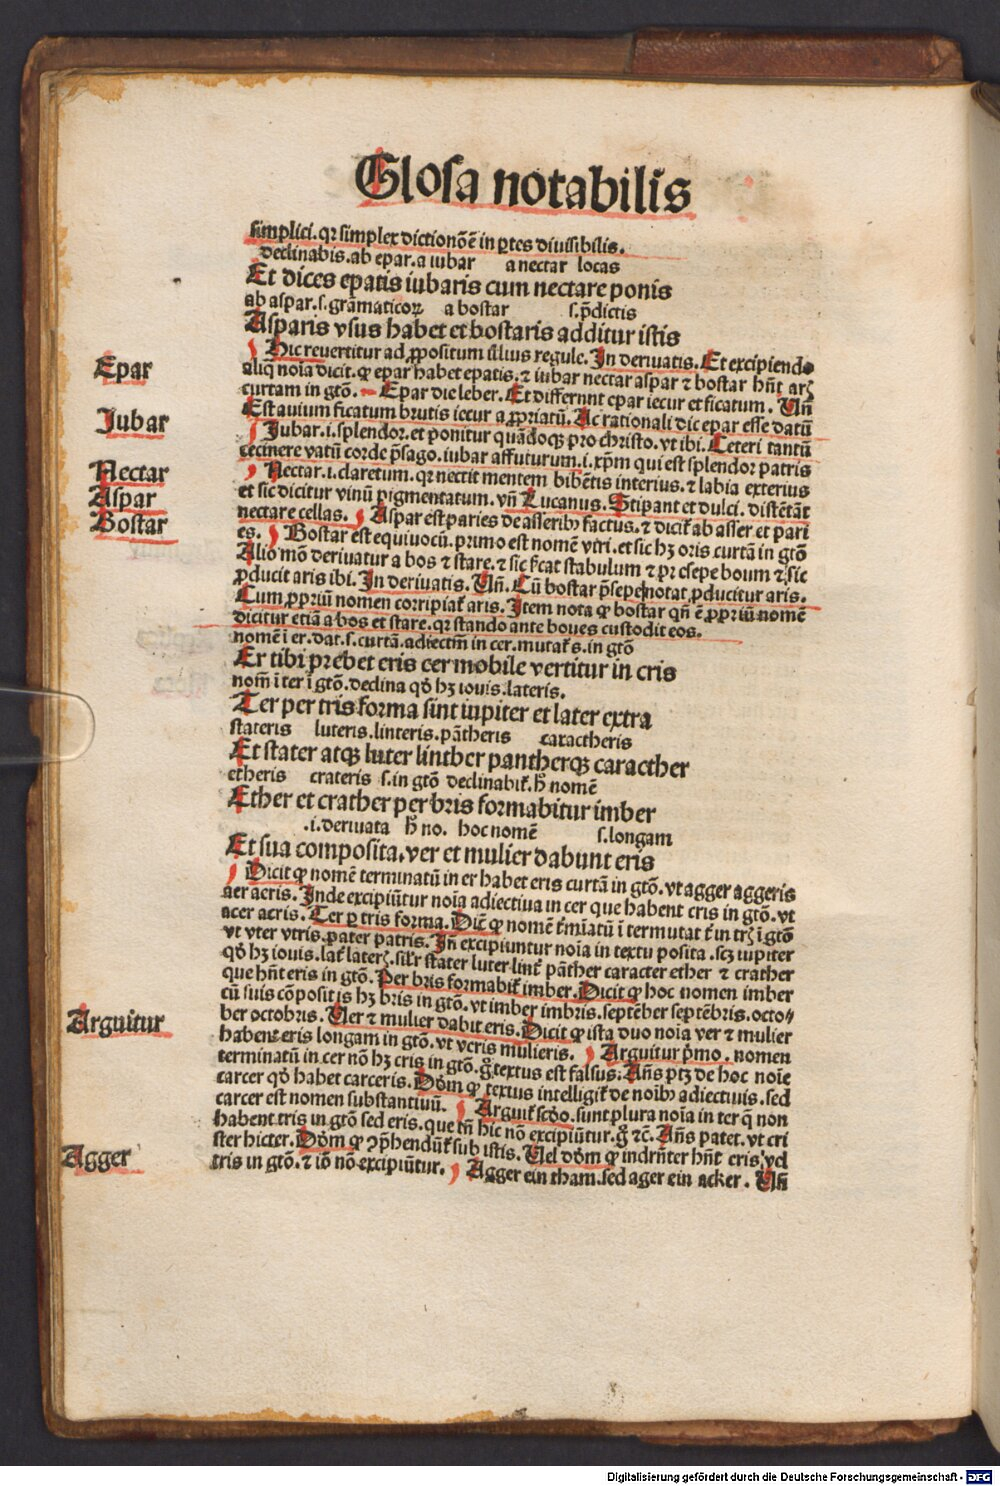 Glosa notabilis
simplici. qꝛ simplex dictionō ē in ꝑtes diuisibilis.
declinabis. ab epar. a iubar a nectar locas
Et dices epatis iubaris cum nectare ponis
ab aspar. s. grāmaticoꝝ a bostar s. p̄dictis
Asparis vsus habet et bostaris additur istis
Hic reuertitur ad ꝓpositum illius regule. In deriuatis. Et excipiendo
Epar
aliq̄ noīa dicit. ꝙ epar habet epatis. ⁊ iubar nectar aspar ⁊ bostar hn̄t arꝭ
curtam in gtō. Epar die leber. Et differunt epar iecur et ficatum. Vn̄
Est auium ficatum brutis iecur a ꝓpriatū. Ac rationali dic epar esse datū
Iubar
Iubar. i. splendor. et ponitur quādoqꝫ pro christo. vt ibi. Ceteri tantū
cecinere vatū corde p̄sago. iubar affuturum. i. xp̄m qui est splendor patris
Nectar
Nectar. i. claretum. qꝛ nectit mentem bibētis interius. ⁊ labia exterius
Aspar
et sic dicitur vinū pigmentatum. vn̄ Lucanus. Stipant et dulci. distētāt
Bostar
nectare cellas. Aspar est paries de asseribꝰ factus. ⁊ dicit̄ ab asser et pari
es. Bostar est equiuocū. primo est nomē vtri. et sic hꝫ oris curtā in gtō
Alio mō deriuatur a bos ⁊ stare. ⁊ sic fi̇cat stabulum ⁊ pr̄ csepe boum ⁊ sic
ꝓducit aris ibi. In deriuatis. Vn̄. Cū bostar p̄sepe notat ꝓducitur aris.
Cum ꝓpriū nomen corripiat̄ aris. Item nota ꝙ bostar qn̄ ē ꝓpriū nomē
dicitur etiā a bos et stare. qꝛ stando ante boues custodit eos.
nomē ī er. dat. s. curtā. adiectm̄ in cer. mutat̄ s. in gtō
Er tibi prebet eris cer mobile vertitur in cris
nom̄ ī ter ī gtō. declina qd̄ hꝫ iouis. lateris.
Ter per tris forma sint iupiter et later extra
stateris luteris. linteris. pātheris caractheris
Et stater atqꝫ luter linther pantherqꝫ caracther
etheris crateris s. in gtō declinabit̄. h̄ nomē
Ether et crather per bris formabitur imber
.i. deriuata h̄ no. hoc nomē s. longam
Et sua composita. ver et mulier dabunt eris
Dicit ꝙ nomē terminatū in er habet eris curtā in gtō. vt agger aggeris
aer aeris. Inde excipiūtur noīa adiectiua in cer que habent cris in gtō. vt
acer acris. Ter ꝑ tris forma. Dic̄ ꝙ nomē t̄mīatū ī ter mutat t̄ in trꝭ ī gtō
vt vter vtris. pater patris. In̄ excipiuntur noīa in textu posita. scꝫ iupiter
qd̄ hꝫ iouis. lat̄ laterꝭ. silr̄ stater luter lint̄ pāther caracter ether ⁊ crather
que hn̄t eris in gtō. Per bris formabit̄ imber. Dicit ꝙ hoc nomen imber
cū suis cōpositis hꝫ bris in gtō. vt imber imbris. septēber septēbris. octo⸗
ber octobris. Uer ⁊ mulier dabit eris. Dicit ꝙ ista duo noīa ver ⁊ mulier
Arguitur
habent eris longam in gtō. vt veris mulieris. Arguitur p̄mo. nomen
terminatū in cer nō hꝫ cris in gtō. g̊ textus est falsus. An̄s ptꝫ de hoc noīe
carcer qd̄ habet carceris. Dd̄m ꝙ textus intelligit̄ de noībꝰ adiectiuis. sed
carcer est nomen substantiuū. Arguit̄ scd̄o. sunt plura noīa in ter q̄ non
habent tris in gtō sed eris. que tn̄ hic nō excipiūtur. g̊ ⁊c̄. An̄s patet. vt cri
Agger
ster hicter. Dd̄m ꝙ ꝯp̄hendūt̄ sub istis. Uel dd̄m ꝙ indrn̄ter hn̄t eris vel
tris in gtō. ⁊ iō nō excipiūtur. Agger ein tham. sed ager ein acker. Vn̄
Digitalisierung gefördert durch die Deutsche Forschungsgemeinschaft - DFG